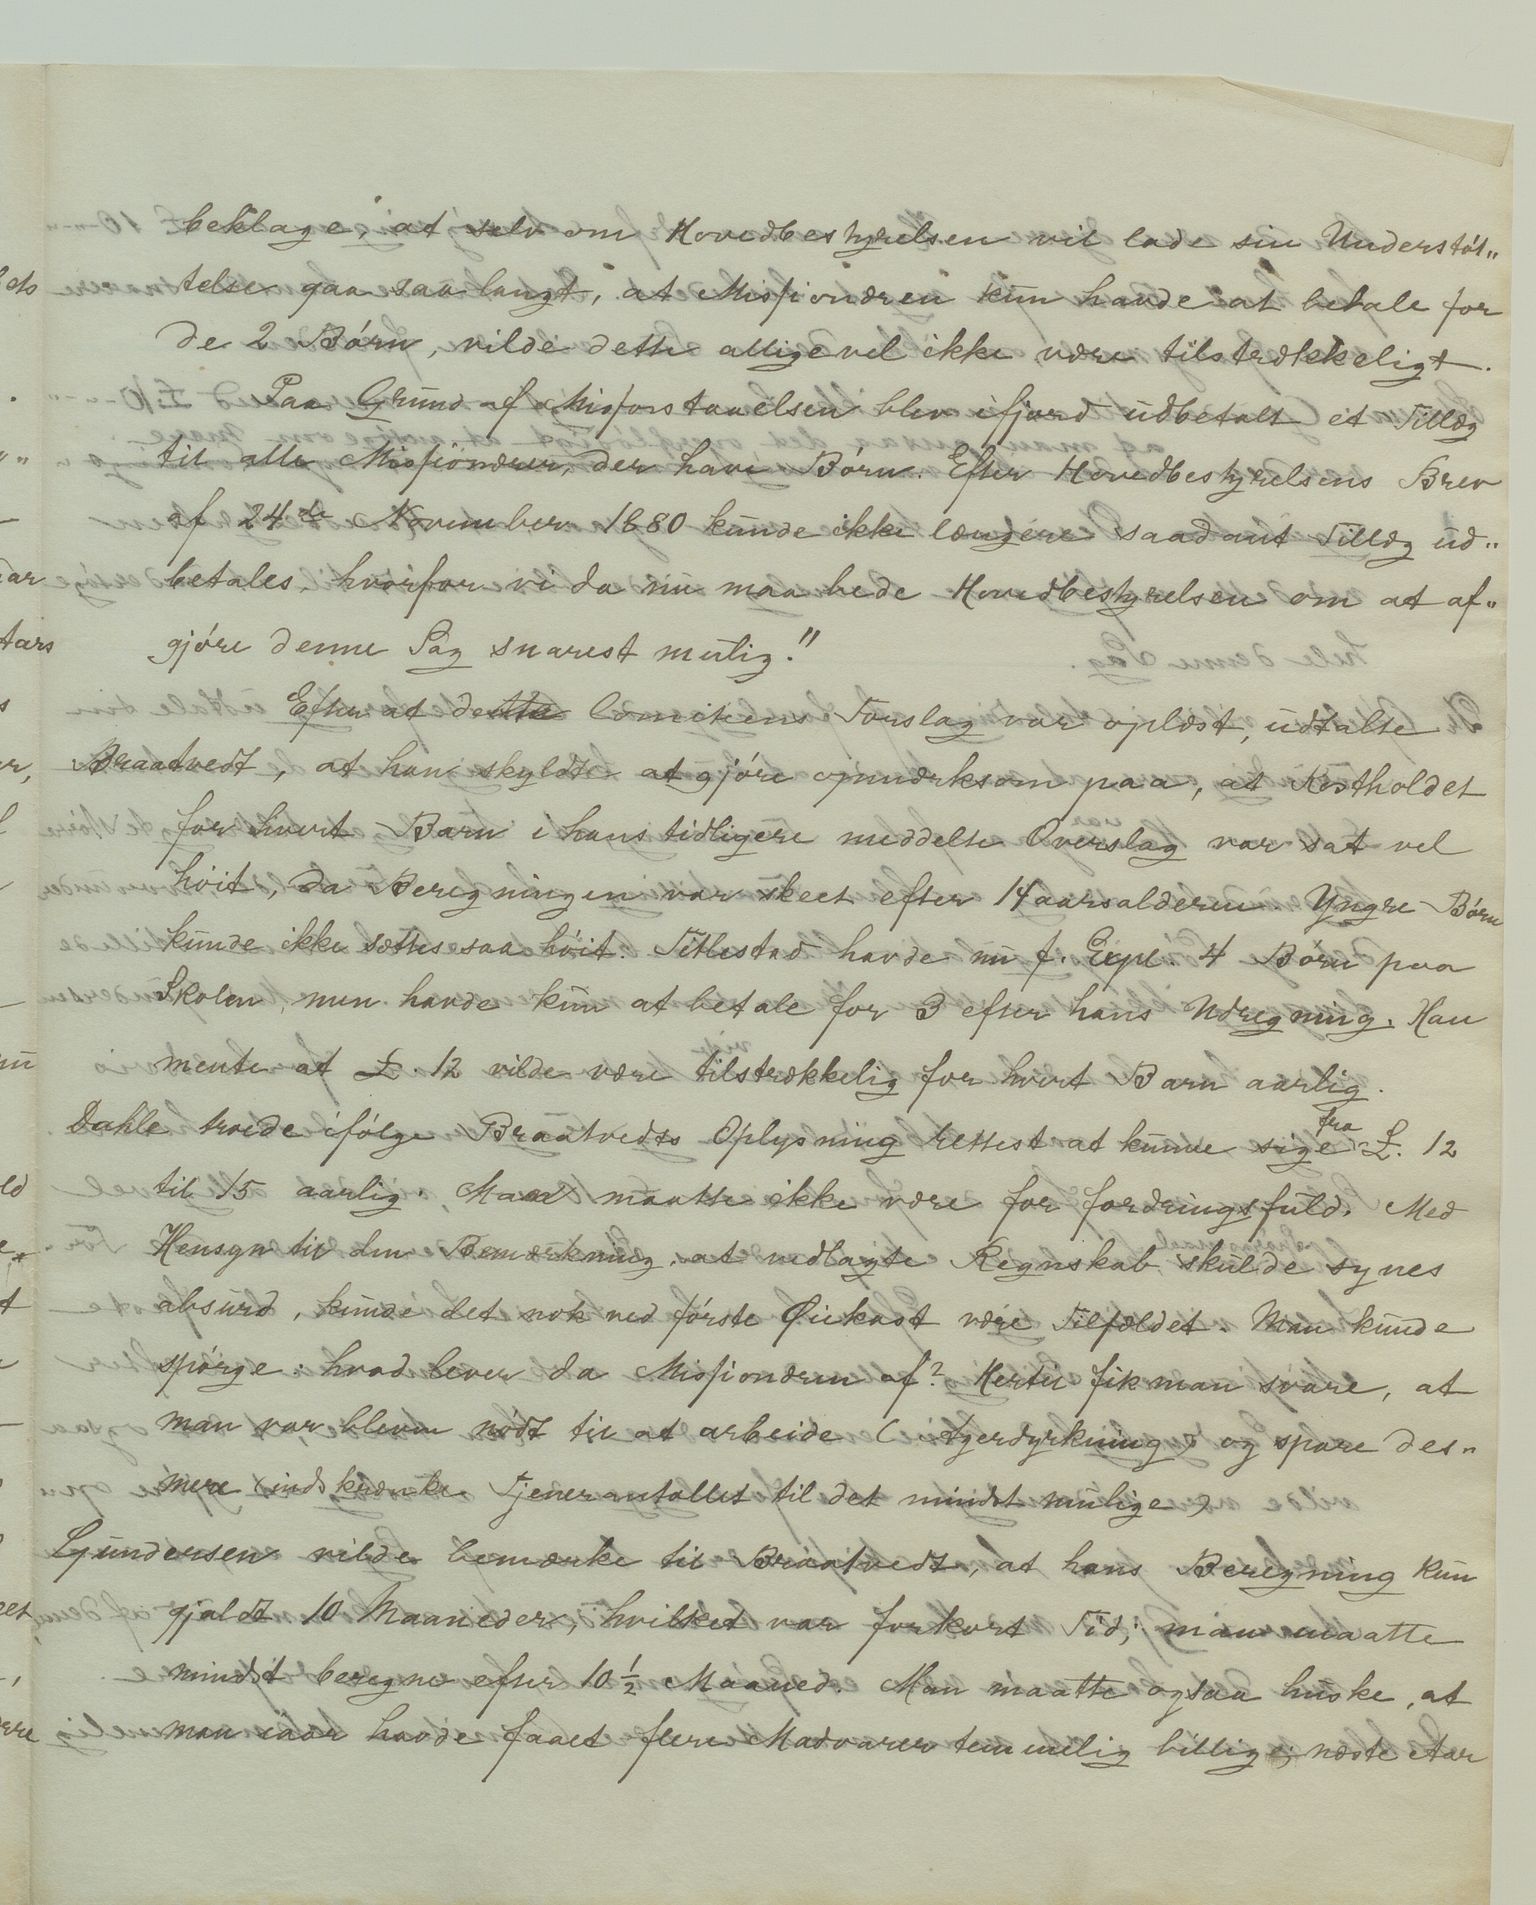 beklage, at selv om Hovedbestyrelsen vil lade sin Understøt„
telse gaa saa langt, at Missionæren kun havde at betale for
de 2 Børn, vilde dette alligevel ikke være tilstrækkeligt.
Paa Grund af Misforstaaelsen blev ifjord udbetalt et Tillæg
til alle Missionærer, der have Børn. Efter Hovedbestyrelsens Brev
af 24de November 1880 kunde ikke længere saadant Tillæg ud„
betales, hvorfor vi da nu maa bede Hovedbestyrelsen om at af„
gjøre denne Sag snarest mulig."
Efter at dette Comiteens Forslag var oplæst, udtalte
Braatvedt, at han skyldte at gjøre opmærksom paa, at Kostholdet
for hvert Barn i hans tidligere meddelte Overslag var sat vel
høit, da Beregningen var skeet efter 14 aarsalderen. Yngre Børn
kunde ikke sættes saa høit. Titlestad havde nu f. Expl. 4 Børn paa
Skolen, men havde kun at betale for 3 efter hans Udregning. Han
mente at £. 12 vilde være tilstrækkelig for hvert Barn aarlig.
Dahle troede ifølge Braatvedts Oplysning rettest at kunne sige fra £. 12
til 15 aarlig; Man maatte ikke være for fordringsfuld. Med
Hensyn til den Bemærkning, at vedlagte Regnskab skulde synes
absurd, kunde det nok ved første Øiekast være Tilfældet. Man kunde
spørge: hvad lever da Missionæren af? Hertil fik man svare, at
man var bleven nødt til at arbeide (Agerdyrkning) og spare des„
mere (indskrænke Tjenerantallet til det mindst mulige)
Gundersen vilde bemærke til Braatvedt, at hans Beregning kun
gjaldt 10 Maaneder, hvilket var for kort Tid; man maatte
mindst beregne efter 10 1/2 Maaned. Man maatte ogsaa huske, at
man iaar havde faaet flere Madvarer temmelig billige; næste Aar